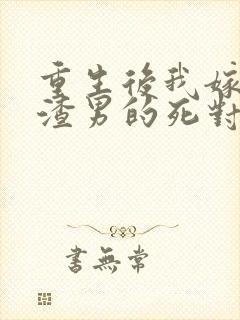 重生後我嫁
渣男的死對
書無常